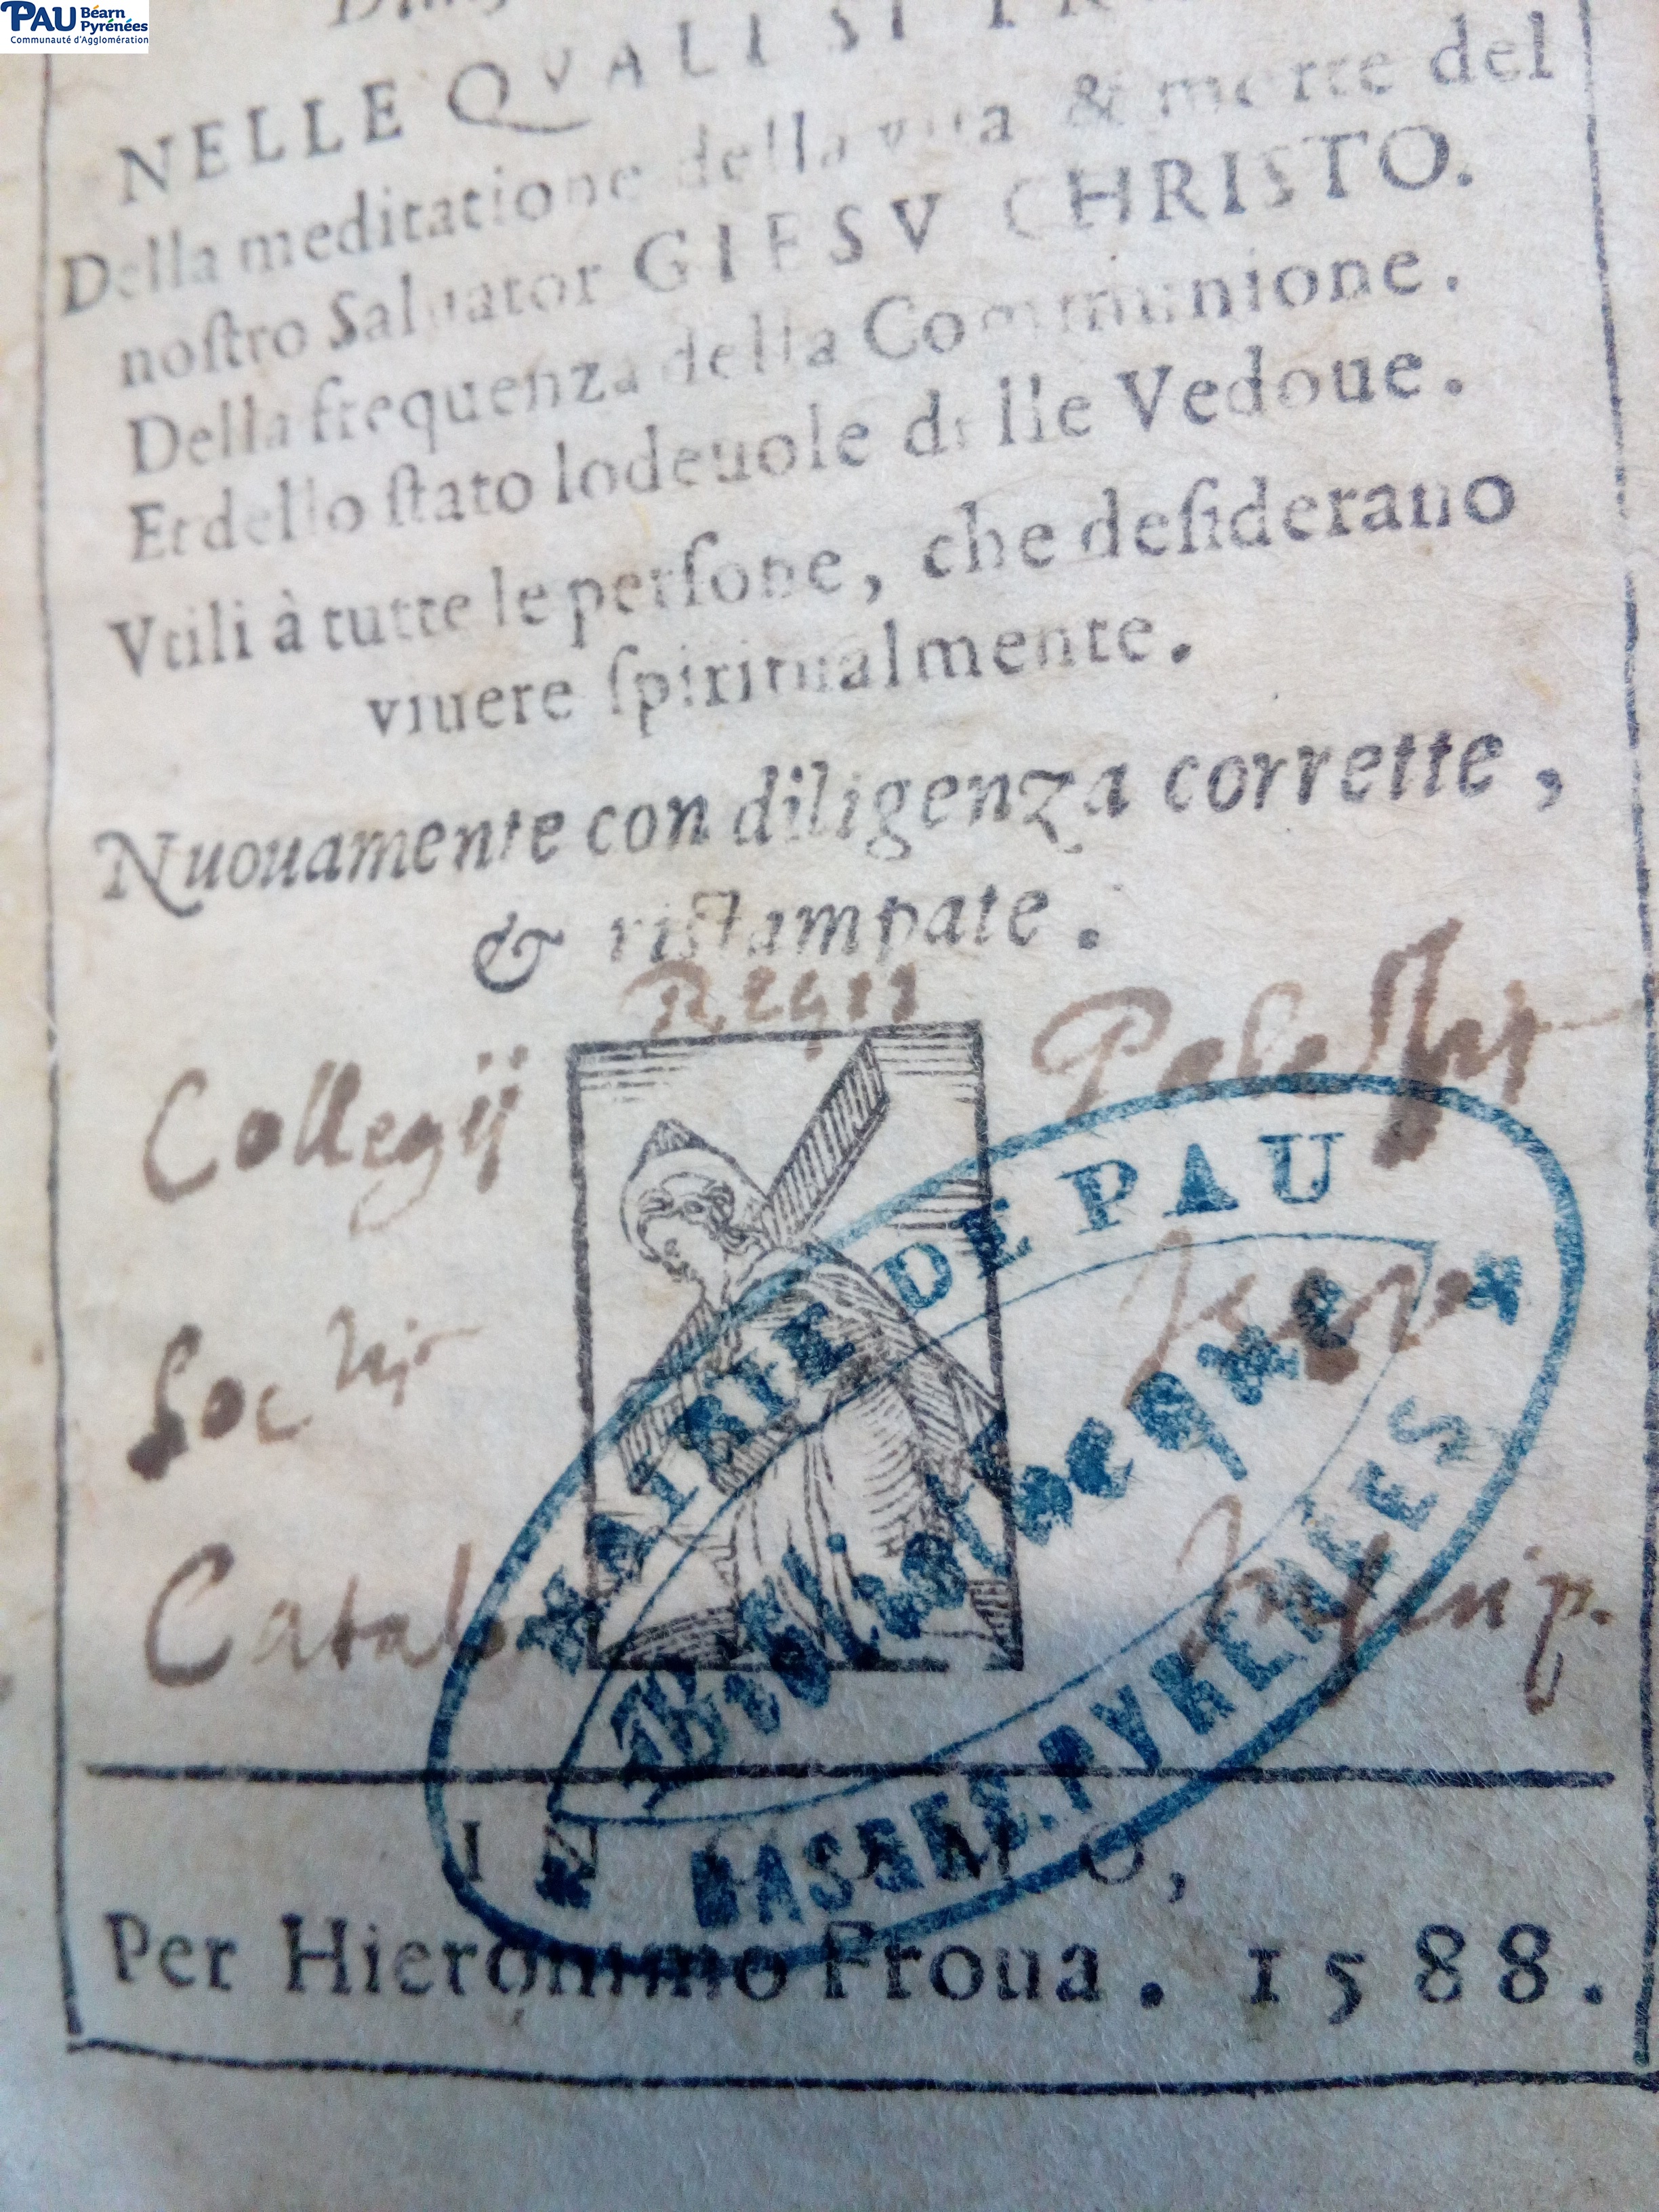 PAU Béarn
Pyrénées
Communauté d'Agglomération
NELLE QVALI SI
Della meditatione della vita & morte del
noſtro Saluator GIESV CHRISTO.
Della frequenza della Communione.
Et dello ſtato lodeuole delle Vedoue.
Vtili à tutte le perſone, che deſiderano
viuere ſpiritualmente.
Nuouamente con diligenza corrette,
& riſtampate.
Regii
Collegij
Soc
Catalo
MAIRIE DE PAU
Bibliothèque
BASSES. PYRÉNÉES
IN COMO,
Per Hieronimo Froua. 1588.